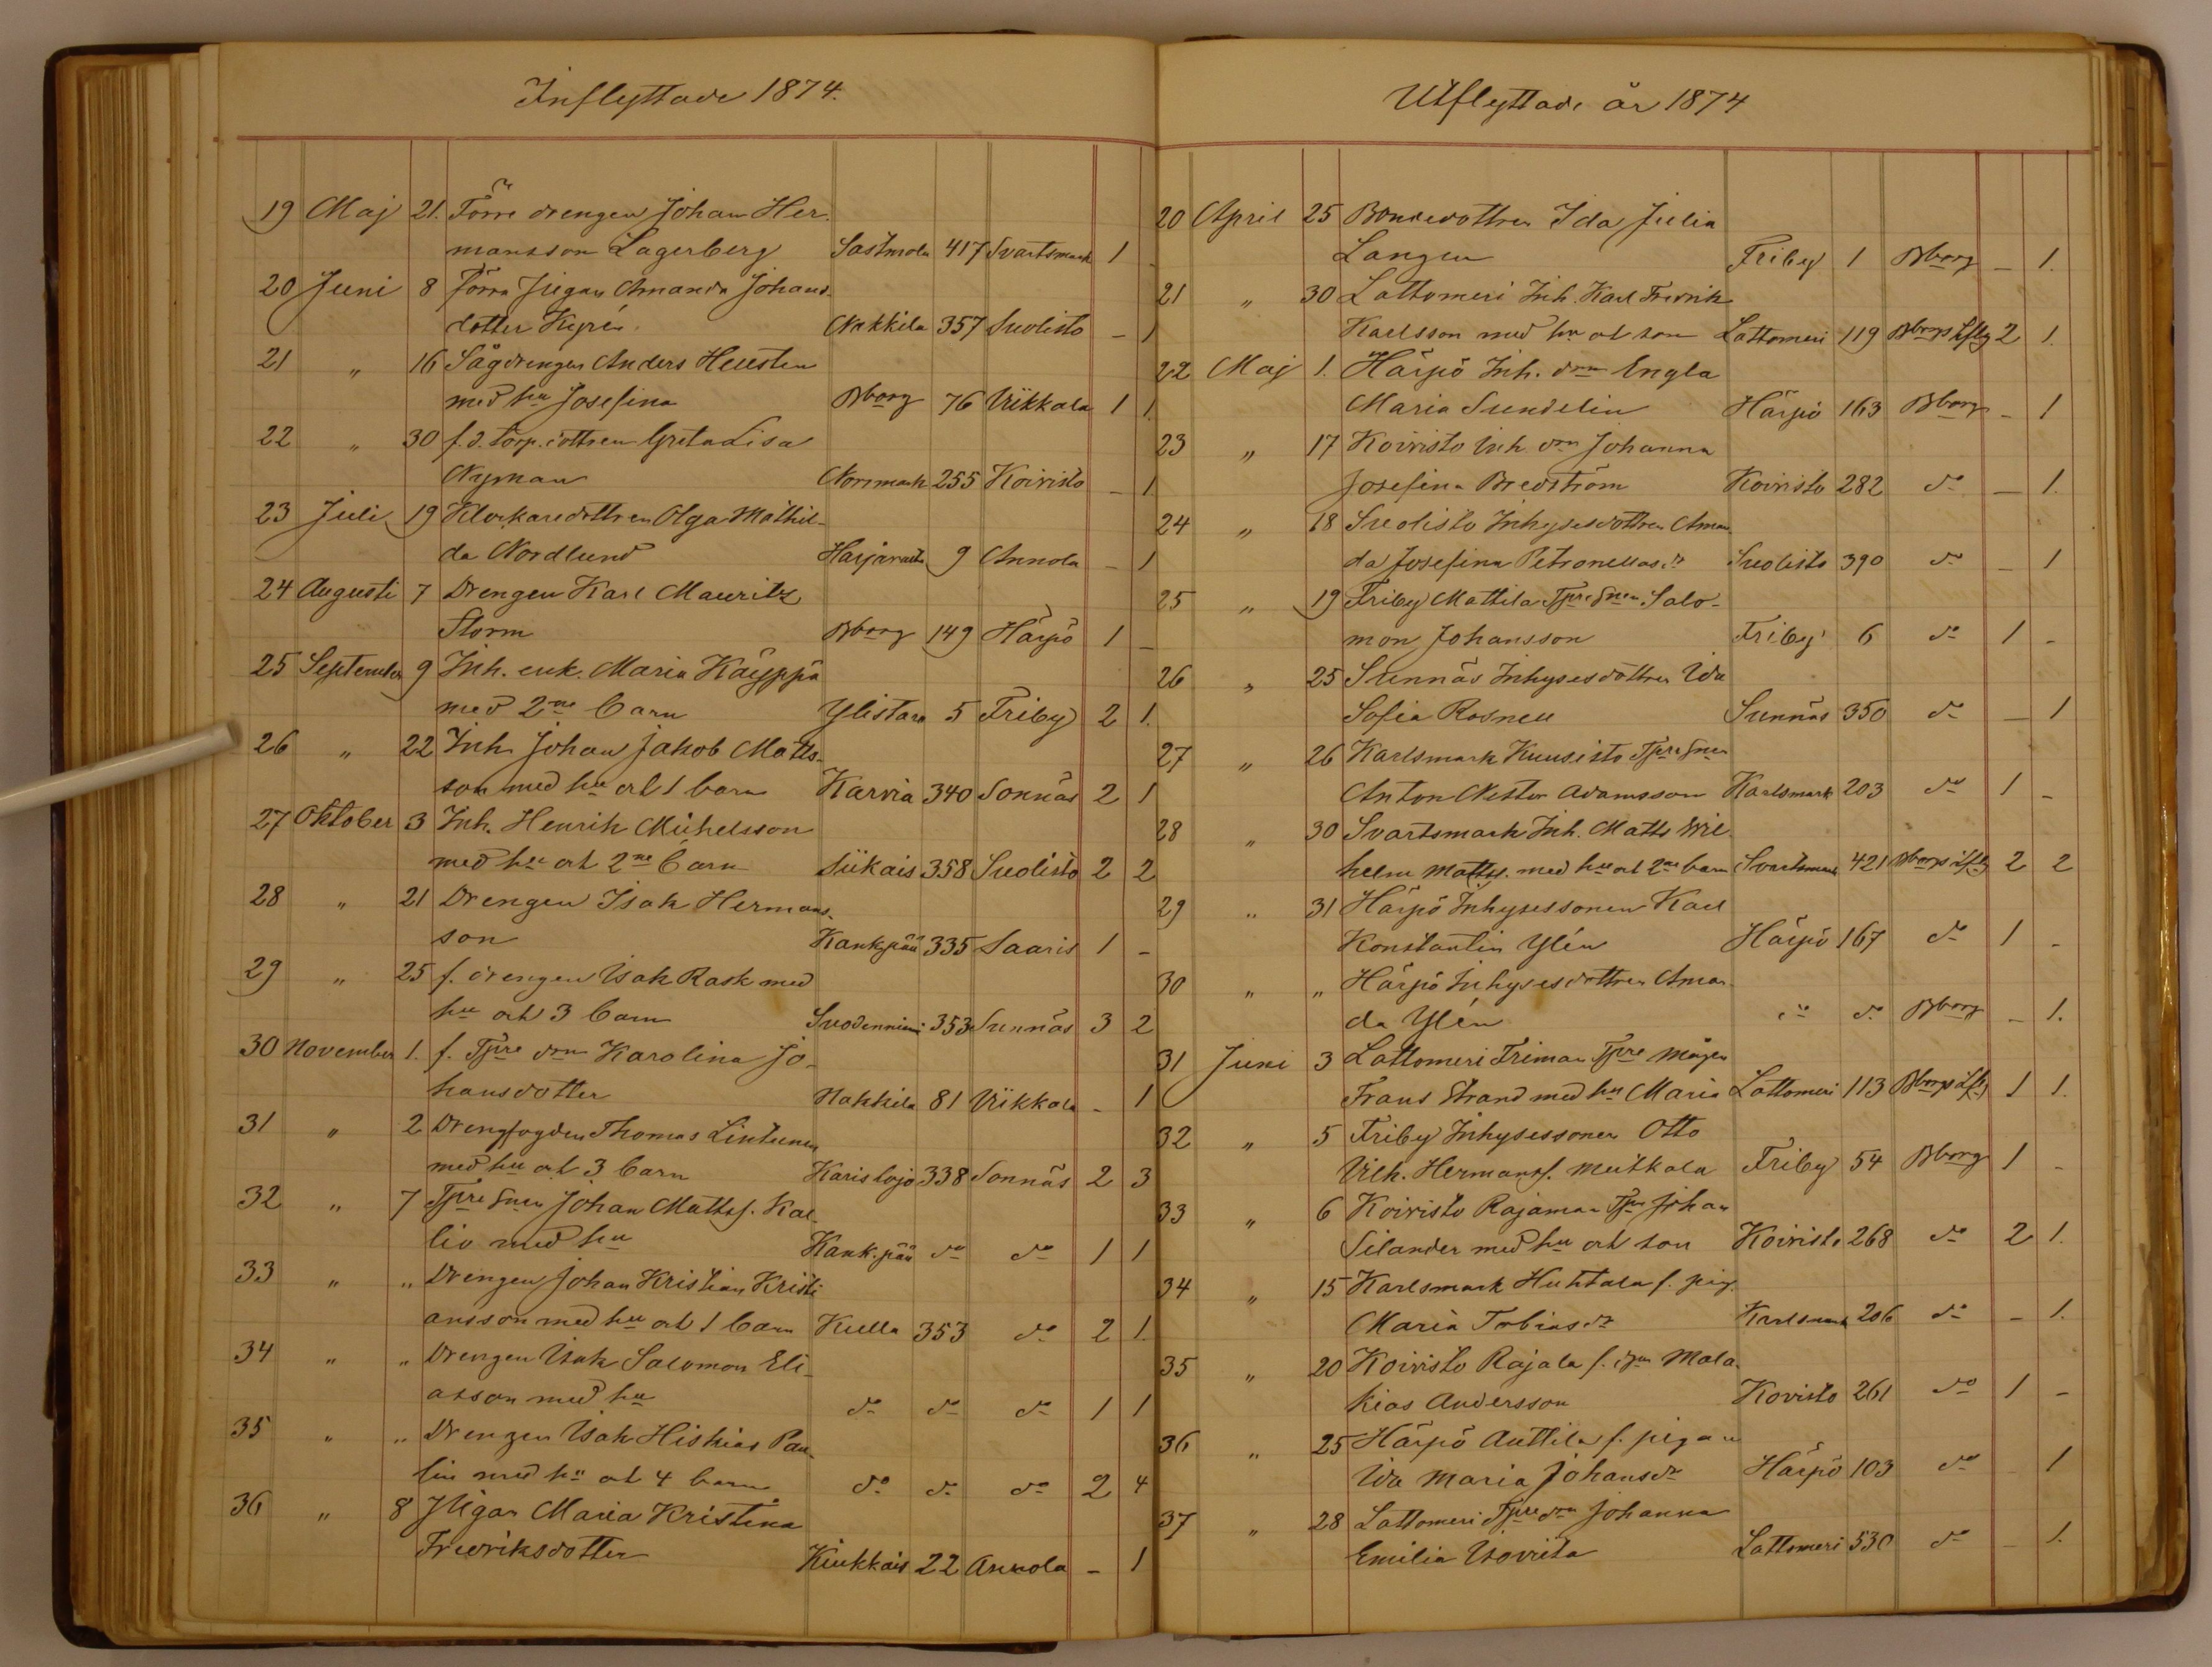 Inflyttade 1874.
19 Maj 21. Förre drengen Johan Her-
mansson Lagerberg Sastmola 417 Svartsmark 1 -
20 Juni 8 Förra Pigan Amanda Johans-
dotter Kyrén Nakkila 357 Suolisto - 1
21 " 16 Sågdrengen Anders Hellsten
med hu Josefina Bborg 76 Viikkala 1 1.
22 " 30 f. d. torp. dottren Greta Lisa
Nyman Norrmark 255 Koivisto - 1
23 Juli 19 Klockaredottren Olga Mathil-
da Nordlund Harjavalta 9 Annola - 1
24 Augusti 7 Drengen Karl Mauritz
Storm Bborg 149 Härpö 1 -
25 September 9 Inh. enk. Maria Käyppä
med 2ne barn Ylistaro 5 Friby 2 1.
26 " 22 Inh. Johan Jakob Matts-
son med hu och 1 barn Karvia 340 Sonnäs 2 1
27 Oktober 3 Inh. Henrik Michelsson
med hu och 2ne barn Siikais 358 Suolisto 2 2
28 " 21 Drengen Isak Hermans-
son Kankpää 335 Saaris 1 -
29 " 25 f. drengen Isak Rask med
hu och 3 barn Suodenniemi 353 Sunnäs 3 2
30 November 1. f. Tpre dnn Karolina Jo-
hansdotter Nakkila 81 Viikkala - 1
31 " 2 Drengfogden Thomas Lintunen
med hu och 3 barn Karislojo 338 Sonnäs 2 3
32 " 7 Tpre Snen Johan Mattss. Kal-
lio med hu Kank.pää do do 1 1
33 " " Drengen Johan Kristian Kristi-
ansson med hu och 1 barn Kulla 353 do 2 1.
34 " " Drengen Isak Salomon Eli-
asson med hu do do do 1 1
35 " " Drengen Isak Hiskias Pau-
lin med hu och 4 barn do do do 2 4
36 " 8 Pigan Maria Kristina
Fredriksdotter Kiukkais 22 Annola - 1
Utflyttade år 1874
20 April 25 Bondedottren Ida Julia
Langen Friby 1 Bborg - 1.
21 " 30 Lattomeri Inh. Karl Fredrik
Karlsson med hu och son Lattomeri 119 Bborgs lfsg 2 1.
22 Maj 1. Härpö Inh. dnn Engla
Maria Sundelin Härpö 163 Bborg - 1
23 " 17 Koivisto Inh. dnn Johanna
Josefina Bredström Koivisto 282 do - 1.
24 " 18 Suolisto Inhysesdottren Aman
da Josefina Petronellasdr Suolisto 390 do - 1
25 " 19 Friby Mattila Tpre Snen Salo-
mon Johansson Friby 6 do 1 -
26 " 25 Sunnäs Inhysesdottren Ida
Sofia Rosnell Sunnäs 350 do - 1
27 " 26 Karlsmark Kuusisto Tpre Snen
Anton Nestor Adamsson Karlsmark 203 do 1 -
28 " 30 Svartsmark Inh. Matts Wil
helm Mattss. med hu och 2ne barn Svartsmark 421 Bborgs lfsg 2 2
29 " 31 Härpö Inhysessonen Karl
Konstantin Ylén Härpö 167 do 1 -
30 " " Härpö Inhysesdottren Aman
da Ylén do do Bborg - 1.
31 Juni 3 Lattomeri Friman Tpre mågen
Frans Strand med hu Maria Lattomeri 113 Bborgs lfsg 1 1.
32 " 5 Friby Inhysessonen Otto
Vilh. Hermanss. Meitkala Friby 54 Bborg 1 -
33 " 6 Koivisto Rajaman Tpn Johan
Silander med hu och son Koivisto 268 do 2 1.
34 " 15 Karlsmark Huhtala f. pig.
Maria Tobiasdr Karlsmark 206 do - 1.
35 " 20 Koivisto Rajala f. dgn Mala-
kias Andersson Kovisto 261 do 1 -
36 " 25 Härpö Anttila f. pigan
Ida Maria Johansdr Härpö 103 do - 1
37 " 28 Lattomeri Tpre dn Johanna
Emilia Isovita Lattomeri 530 do - 1.